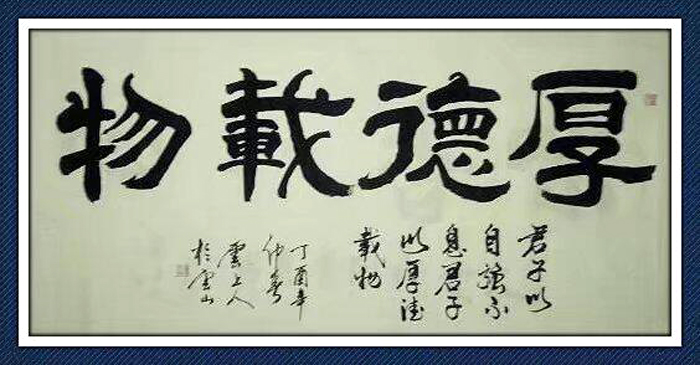 厚德載物
君子以
自強不
息君子
以厚德
載物
丁酉年
仲春
雲上人
於雲山